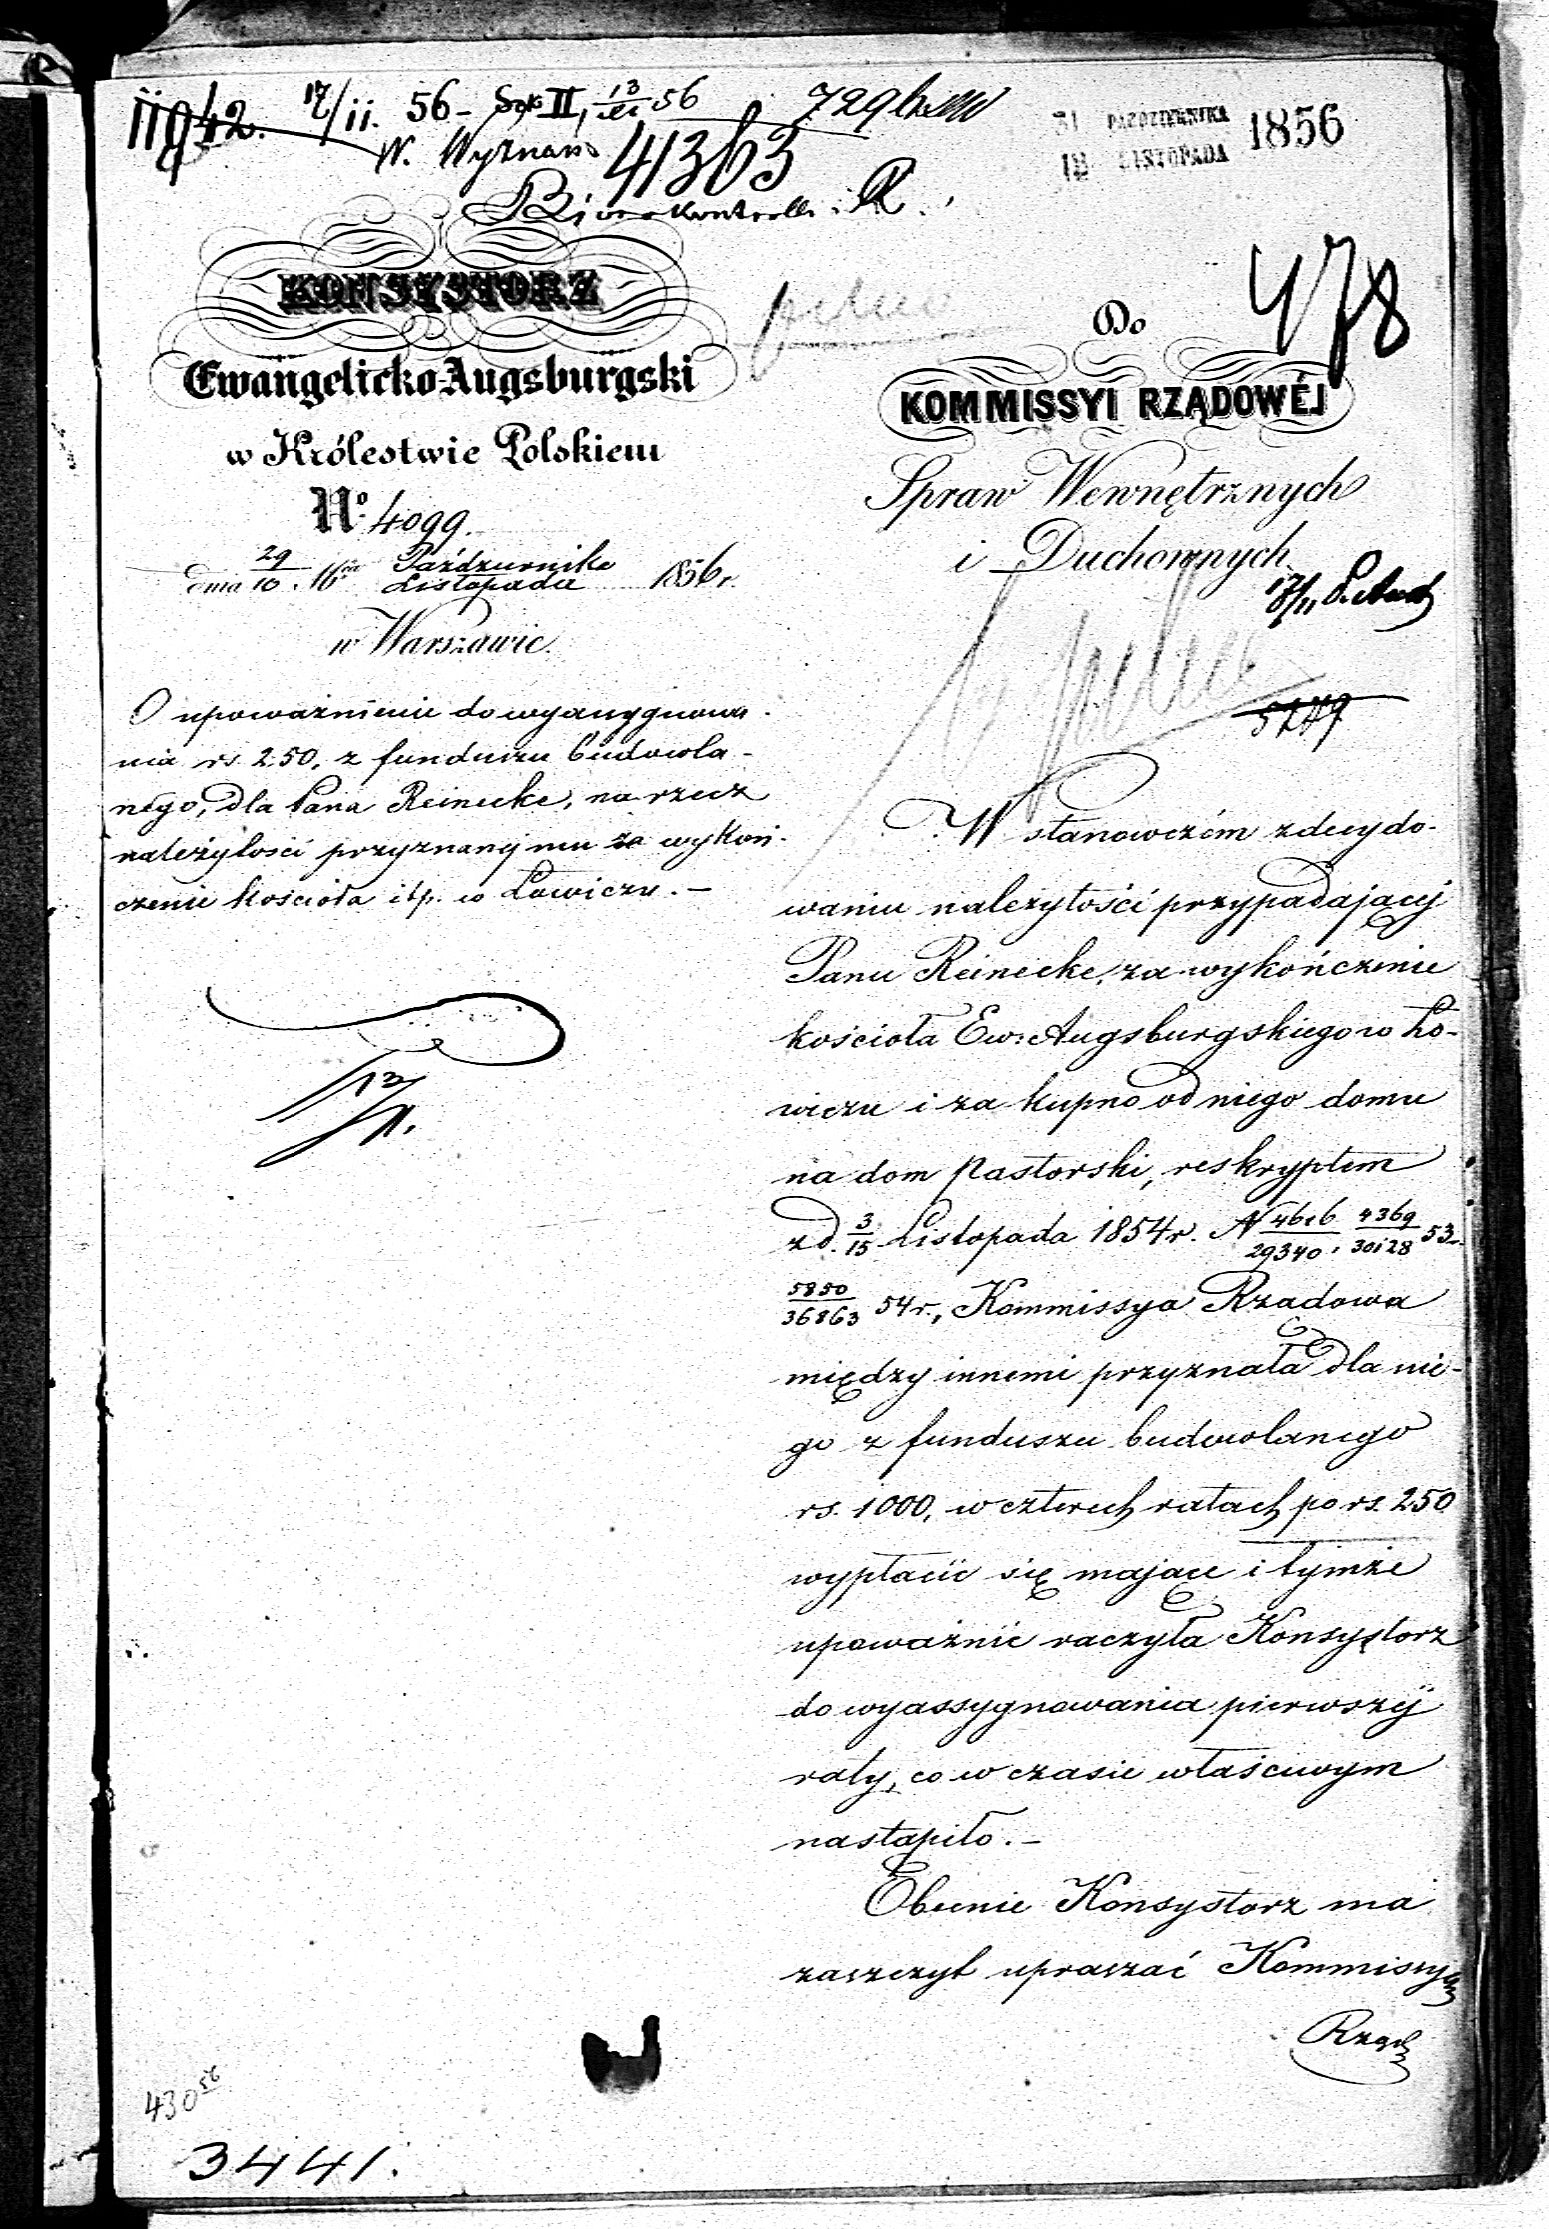 11942. 17/11. 56 - Sek II, 13/11 56 7296
W. Wyznań 41363
31 PAZDZIERNIKA
12 LISTOPADA 1856
Biuro Kontrolli i R.
478
KONSYSTORZ
Ewangelicko-Augsburgski
w Królestwie Polskiem
No 4099.
dnia 29/10 . 16ia Października/Listopada 1856 r.
w Warszawie.
O upoważnienie do wyassygnowa-
nia rs. 250, z funduszu budowla-
nego, dla Pana Reinecke, na rzecz
należytości przyznanej mu za wykoń-
czenie kościoła itp. w Łowiczu. —
Do
KOMMISSYI RZĄDOWÉJ
Spraw Wewnętrznych
i Duchownych
17/11
5249
W stanowczém zdecydo-
waniu należytości przypadającej
Panu Reinecke, za wykończenie
kościoła Ew: Augsburgskiego w Ło-
wiczu i za kupno od niego domu
na dom Pastorski, reskryptem
z d. 3/15 Listopada 1854 r. N 4616/29340, 4369/30128 53.
5850/36863 54 r., Kommissya Rządowa
między innemi przyznała dla nie-
go z funduszu budowlanego
rs. 1000, w czterech ratach po rs. 250
wypłacić się mające i tymże
upoważnić raczyła Konsystorz
do wyassygnowania pierwszéj
raty, co w czasie właściwym
nastąpiło. —
Obecnie Konsystorz ma
zaszczyt upraszać Kommissyą
Rząd
430 56
3441.